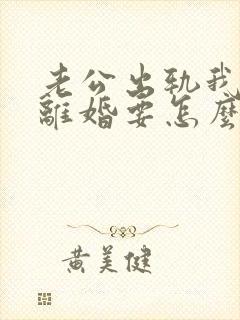 老公出軌我
離婚要怎麼
黄美健